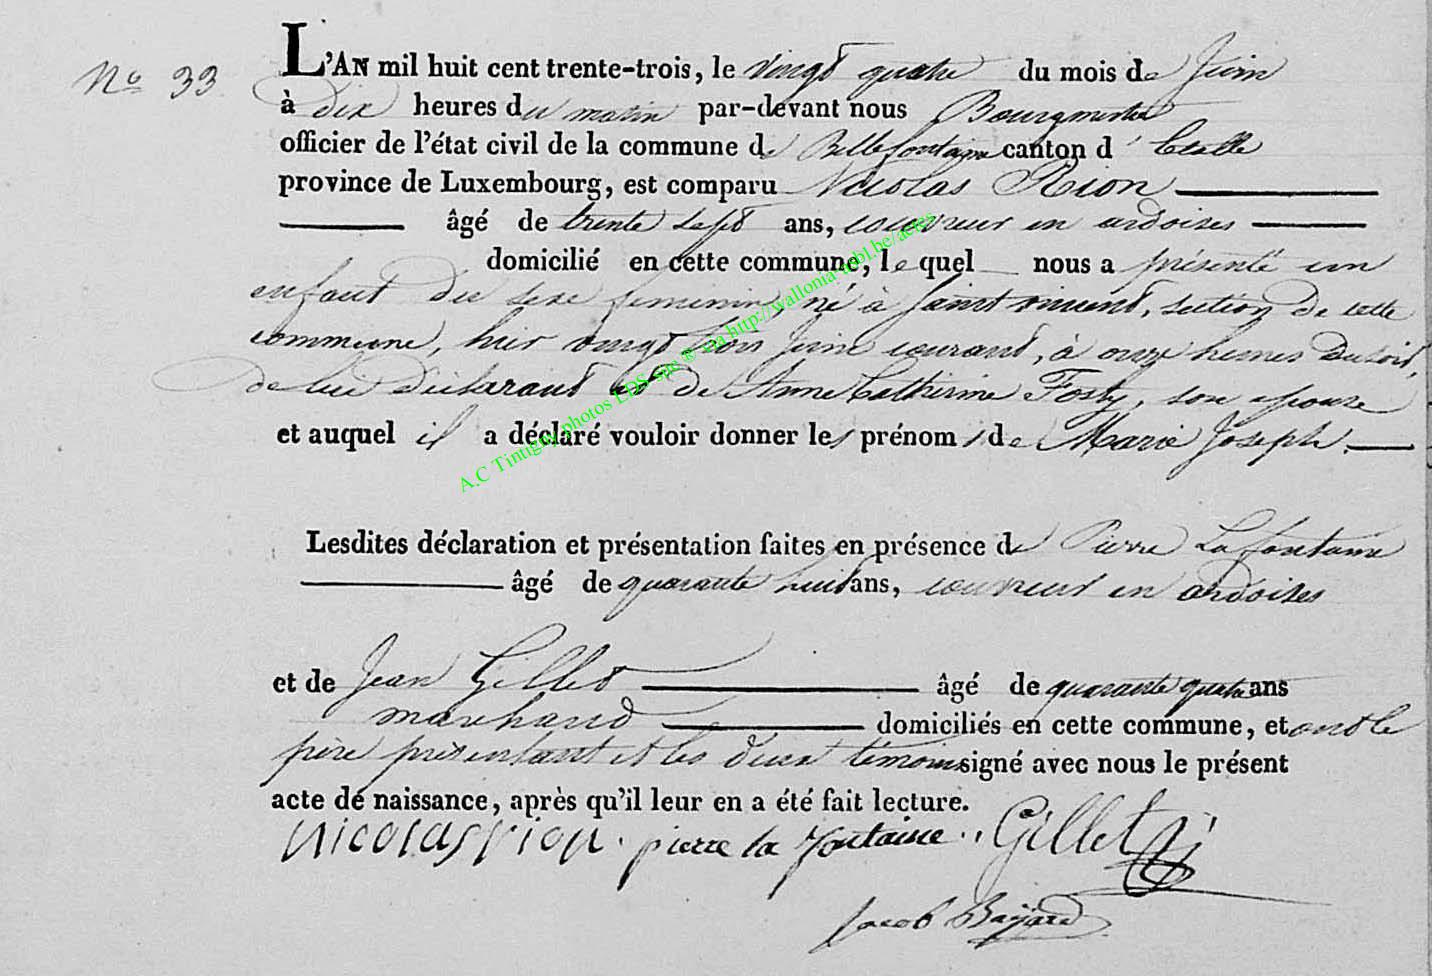 N° 33
L'AN mil huit cent trente-trois, le vingt quatre du mois de Juin
à dix heures du matin par-devant nous Bourgmestre
officier de l'état civil de la commune de Bellefontaine canton d'Etalle
province de Luxembourg, est comparu Nicolas Rion
âgé de trente sept ans, couvreur en ardoises
domicilié en cette commune, lequel nous a présenté un
enfant du sexe feminin, né à Saint vincent, section de cette
commune, hier vingt trois Juin courant, à onze heures du soir,
de lui déclarant et de Anne Catherine Fosty, son epouse
et auquel il a déclaré vouloir donner les prénoms de Marie Joseph.
Lesdites déclaration et présentation faites en présence de Pierre La fontaine
âgé de quarante huit ans, couvreur en ardoises
et de Jean Gillet âgé de quarante quatre ans
marchand domiciliés en cette commune, et ont le
père présentant et les deux témoins signé avec nous le présent
acte de naissance, après qu'il leur en a été fait lecture.
Nicolas rion. pierre la fontaine. Gillet j
Jacob Bayard
A.C Tintigny photos LDS sur ® via http://wallonia-asbl.be/actes